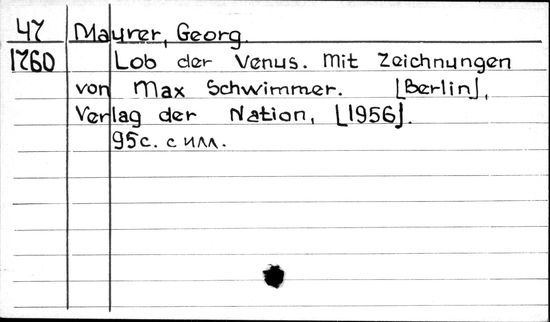 47 Maurer, Georg.
1760 Lob der Venus. Mit Zeichnungen
von Max Schwimmer. [Berlin],
Verlag der Nation, [1956].
95с. с илл.